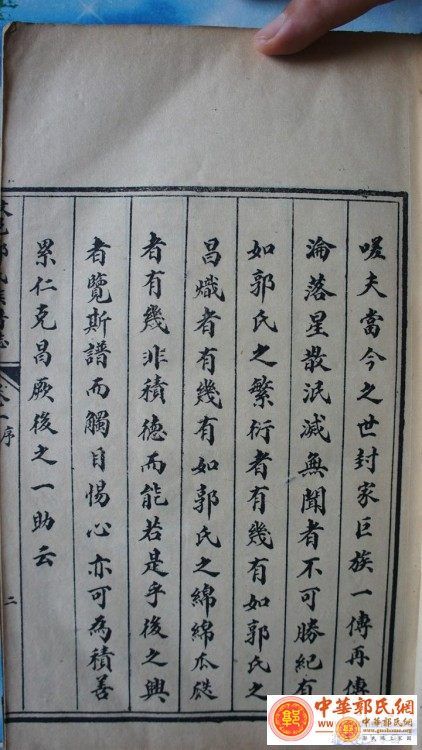 嗟夫當今之世封家巨族一傳再傳
淪落星散泯滅無聞者不可勝紀有
如郭氏之繁衍者有幾有如郭氏之
昌熾者有幾有如郭氏之綿綿瓜瓞
者有幾非積德而能若是乎後之興
者覽斯譜而觸目惕心亦可為積善
累仁克昌厥後之一助云
序
二
中華郭氏網
中華郭氏網
www.guoshome.org